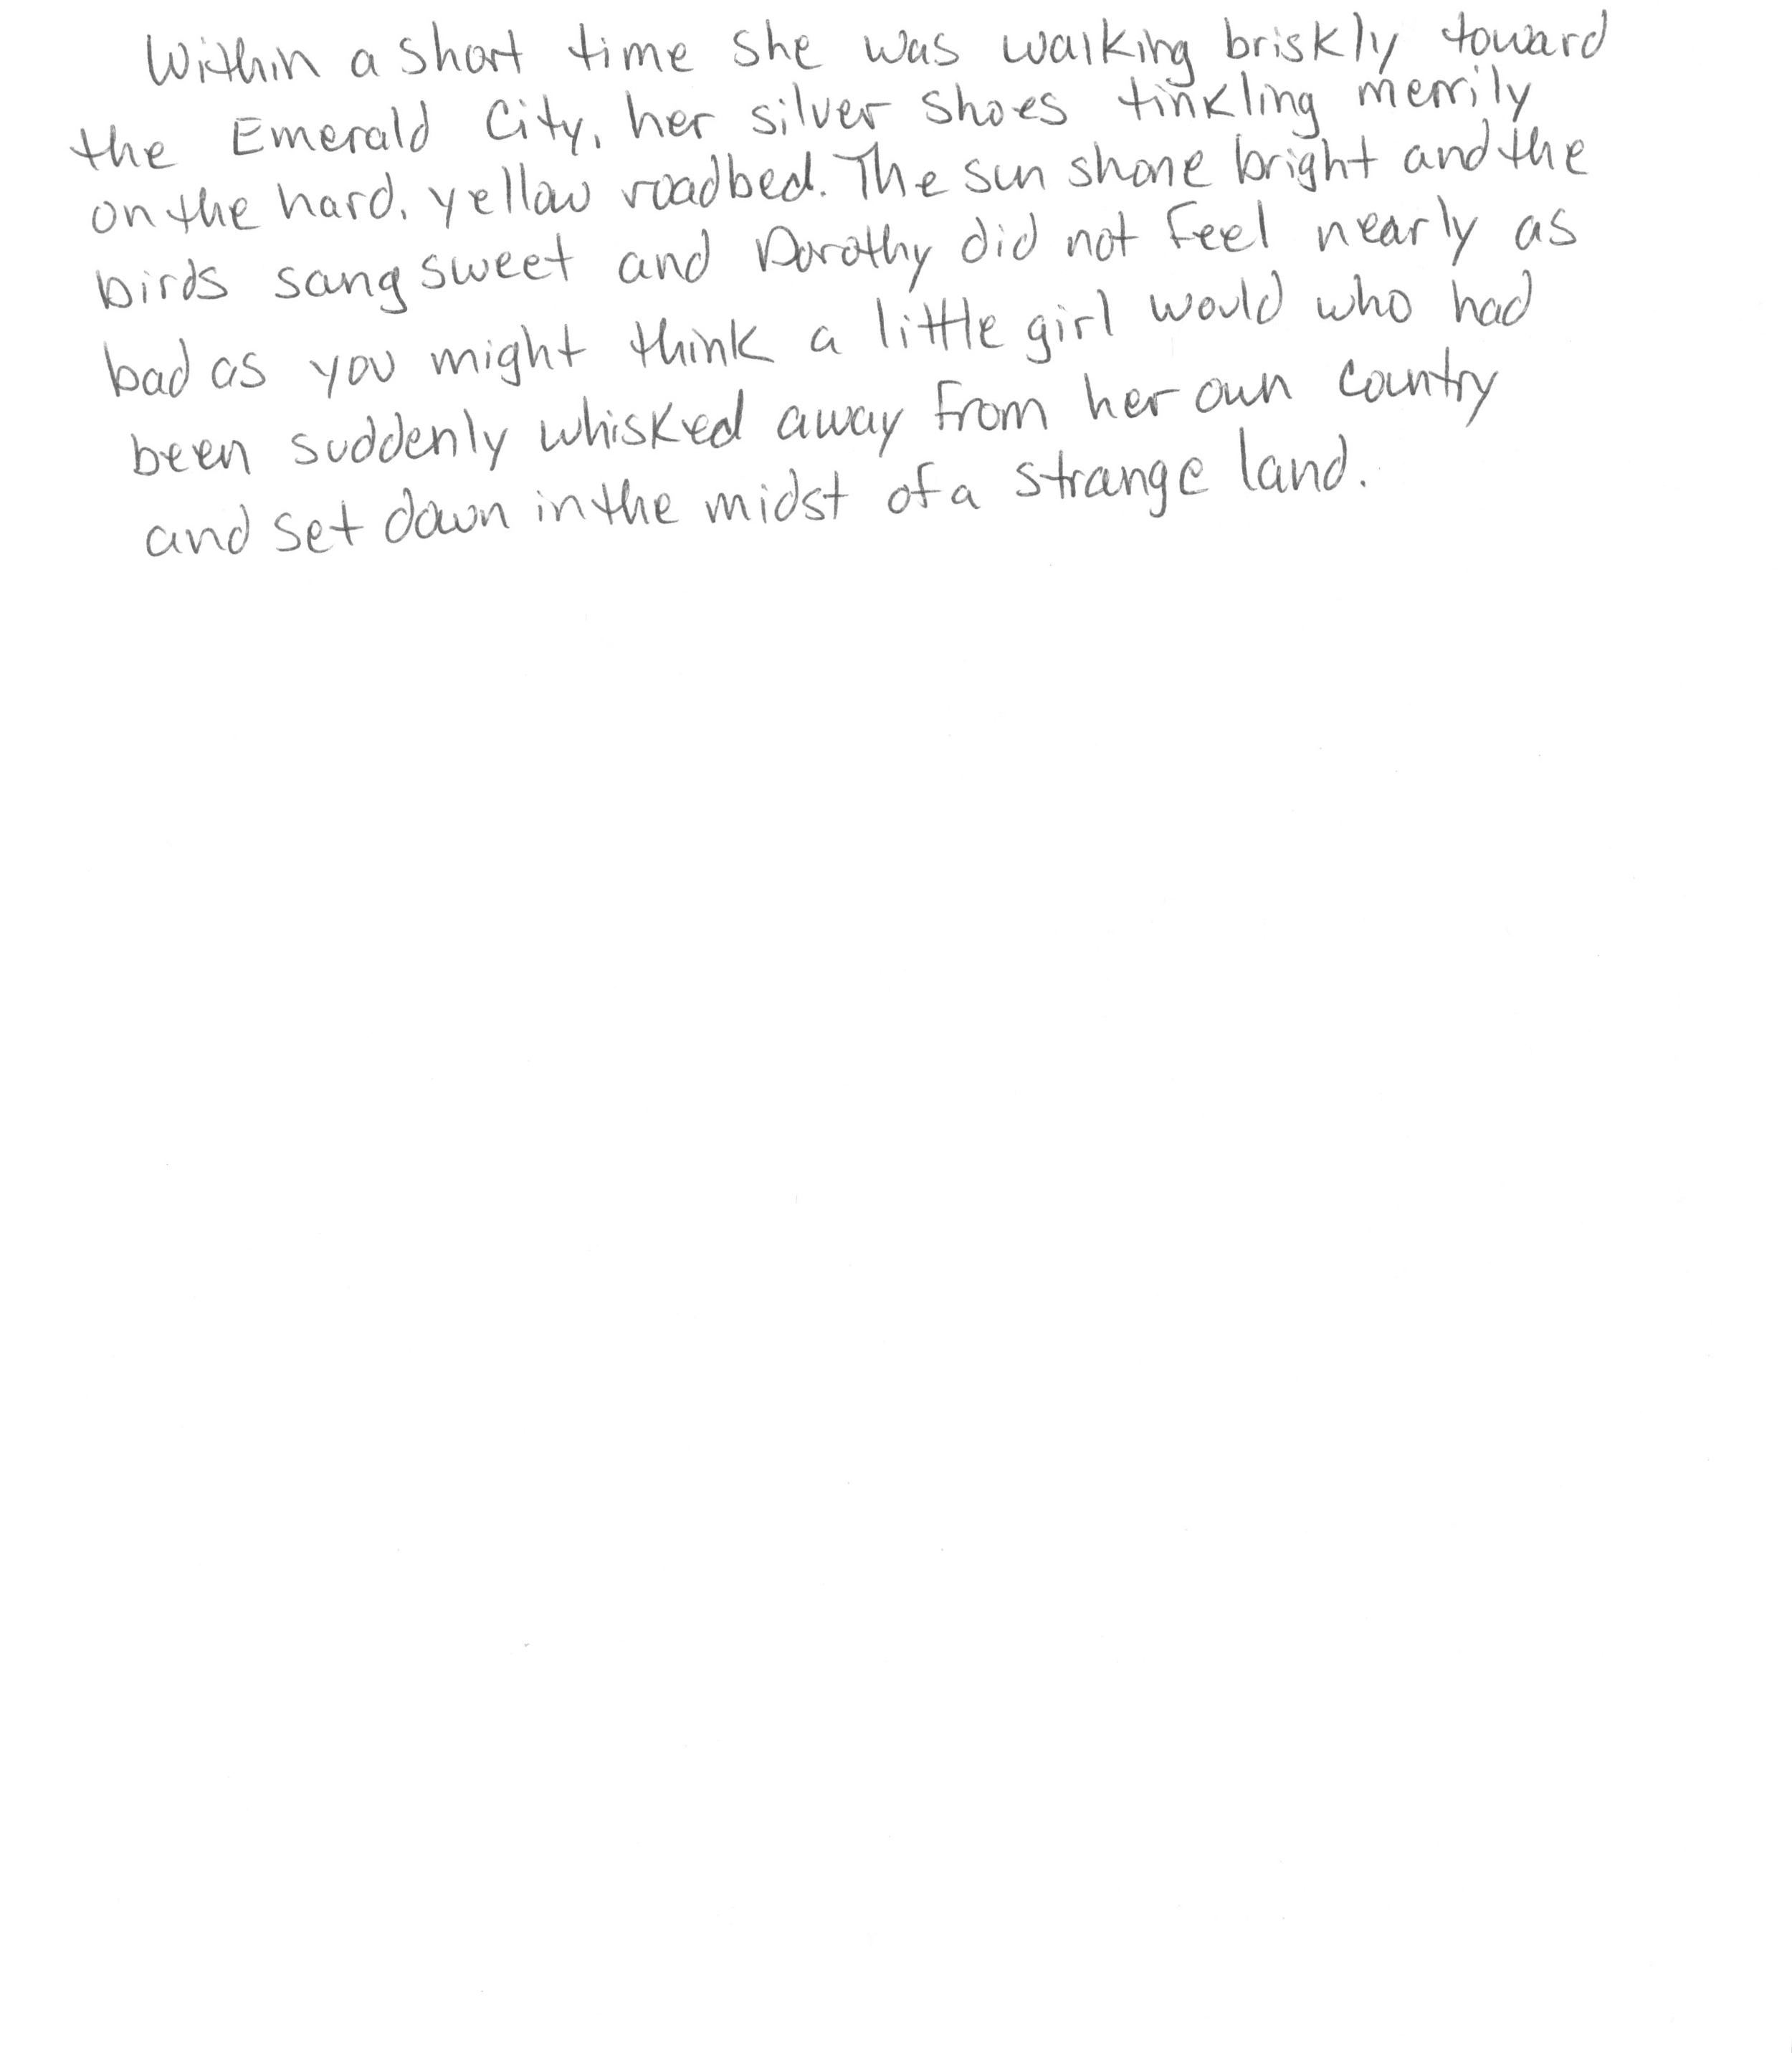 Within a short time she was walking briskly toward
the Emerald City, her silver shoes tinkling merrily
on the hard, yellow roadbed. The sun shone bright and the
birds sang sweet and Dorothy did not feel nearly as
bad as you might think a little girl would who had
been suddenly whisked away from her own country
and set down in the midst of a strange land.